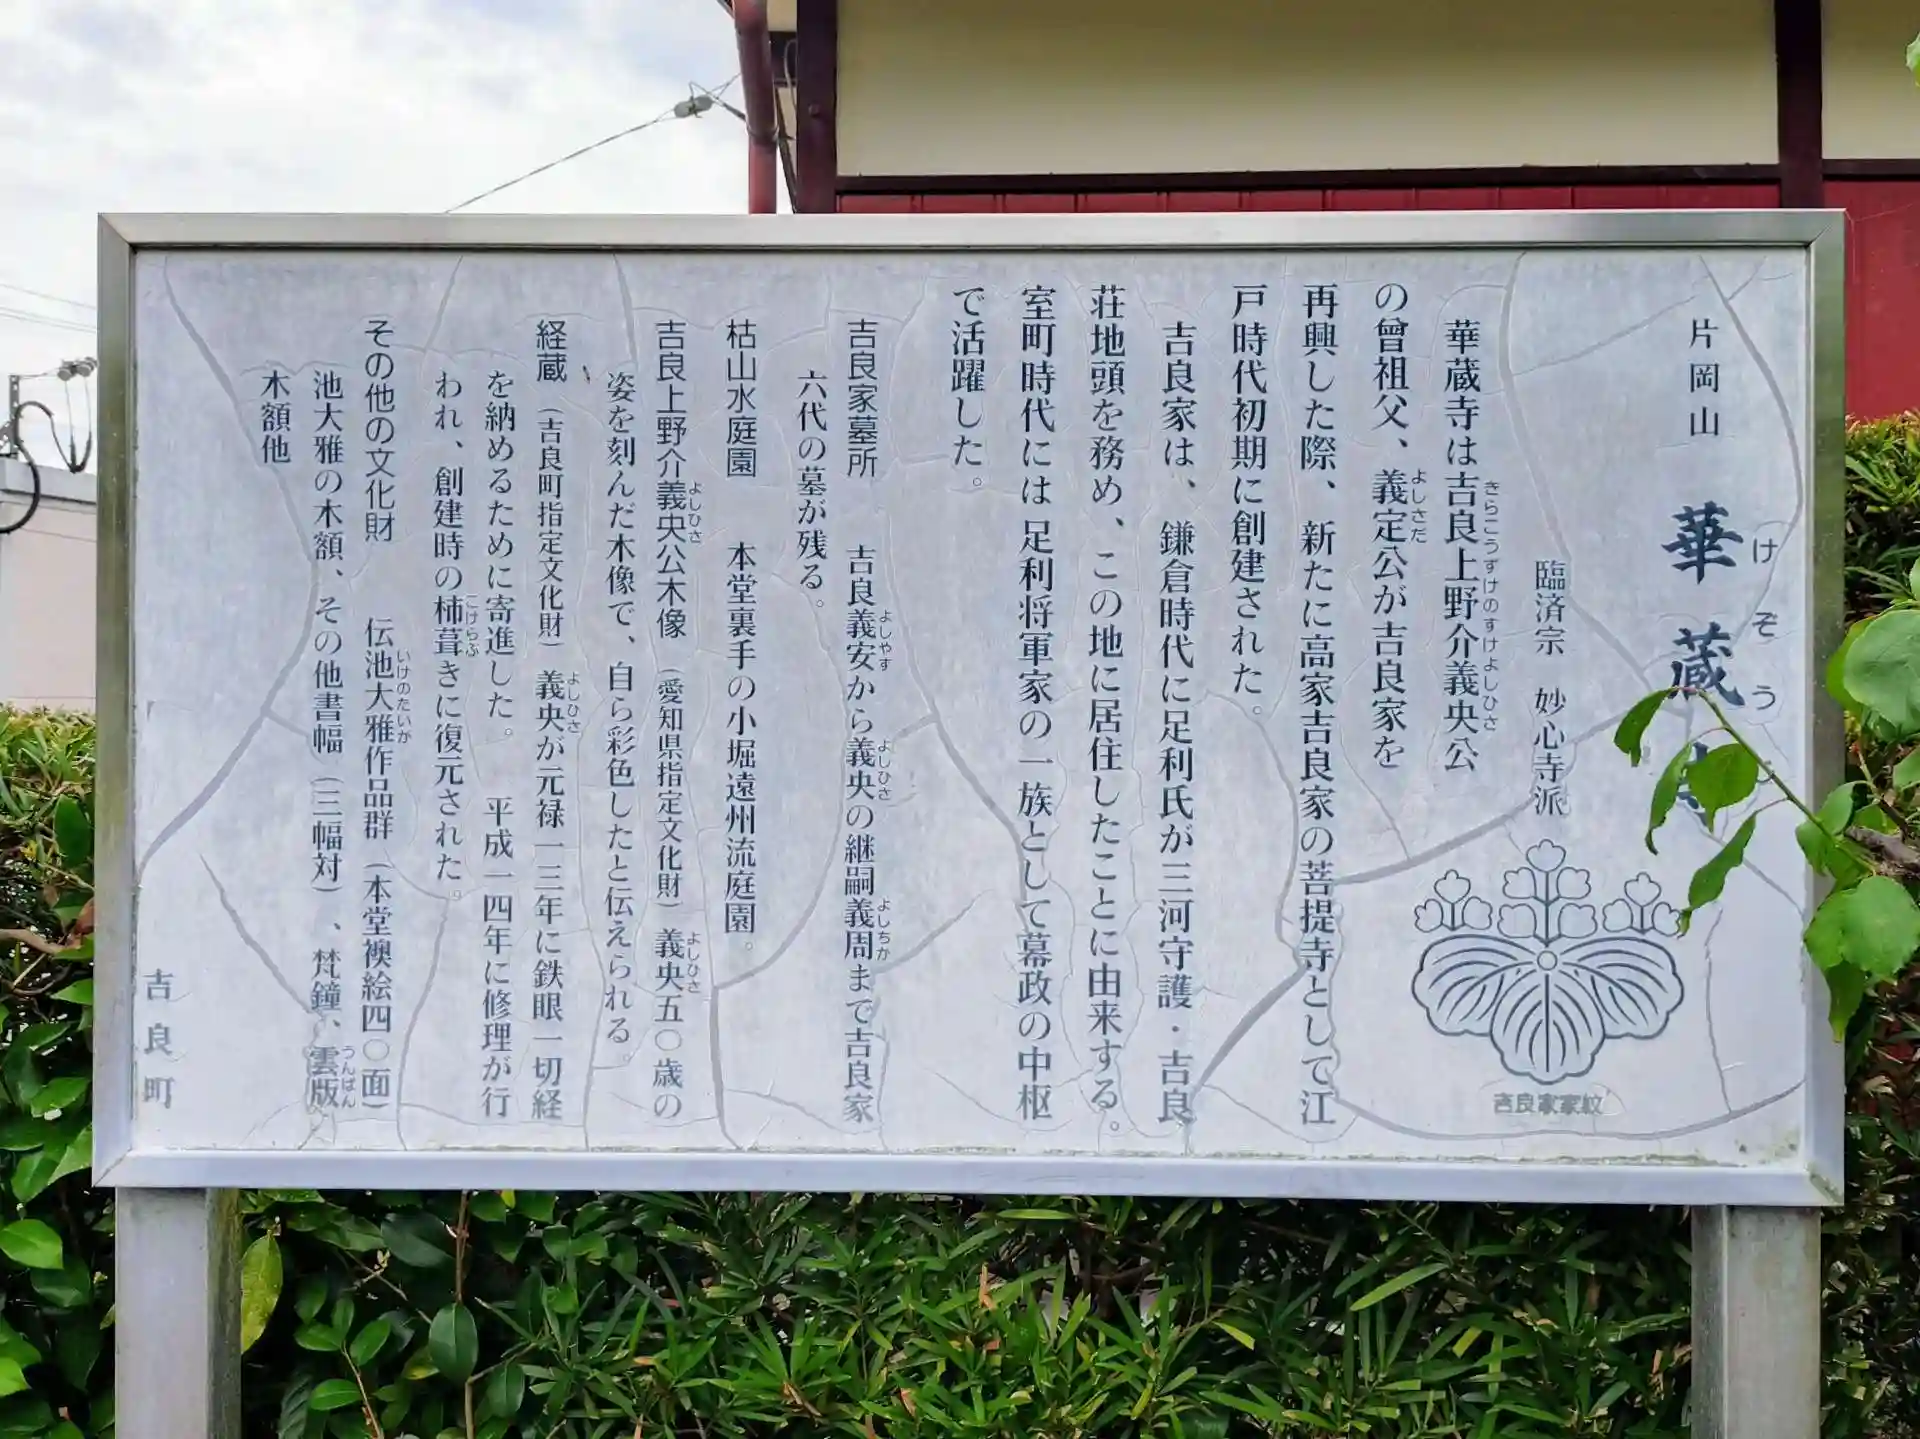 片岡山 華蔵
けぞう
臨済宗 妙心寺派
吉良家家紋
華蔵寺は吉良上野介義央公
きらこうずけのすけよしひさ
の曾祖父、義定公が吉良家を
よしさだ
再興した際、新たに高家吉良家の菩提寺として江
戸時代初期に創建された。
吉良家は、鎌倉時代に足利氏が三河守護・吉良
荘地頭を務め、この地に居住したことに由来する。
室町時代には足利将軍家の一族として幕政の中枢
で活躍した。
吉良家墓所 吉良義安から義央の継嗣義周まで吉良家
よしやす よしひさ よしちか
六代の墓が残る。
枯山水庭園 本堂裏手の小堀遠州流庭園。
吉良上野介義央公木像(愛知県指定文化財)義央五〇歳の
よしひさ よしひさ
姿を刻んだ木像で、自ら彩色したと伝えられる。
経蔵(吉良町指定文化財)義央が元禄一三年に鉄眼一切経
よしひさ
を納めるために寄進した。 平成一四年に修理が行
われ、創建時の杮葺きに復元された。
こけらぶ
その他の文化財 伝池大雅作品群(本堂襖絵四〇面)
いけのたいが
池大雅の木額、その他書幅(三幅対)、梵鐘、雲版
うんぱん
木額他
吉良町